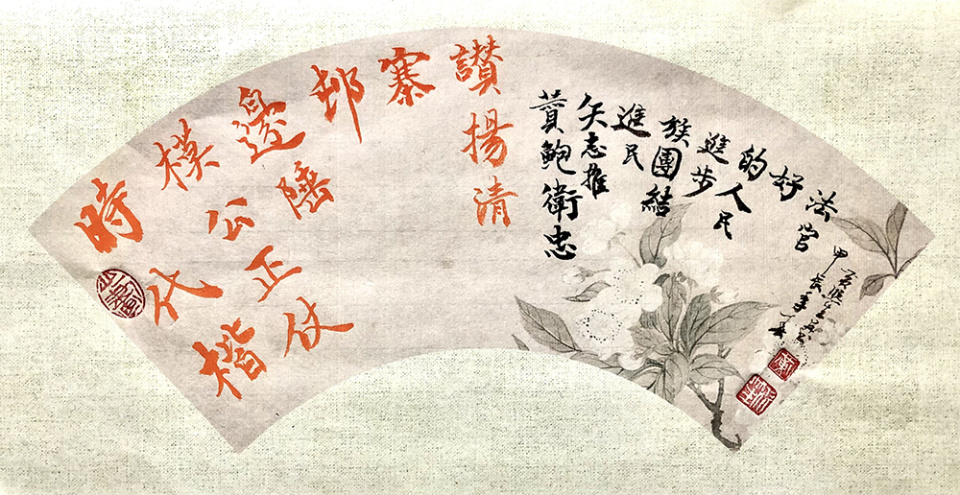 時代楷
模公正仗
邊陲
邨
寨
讚揚清
贊鮑衛忠
矢志推
進民
族團結
進步
的人民
好
法官
甲辰年